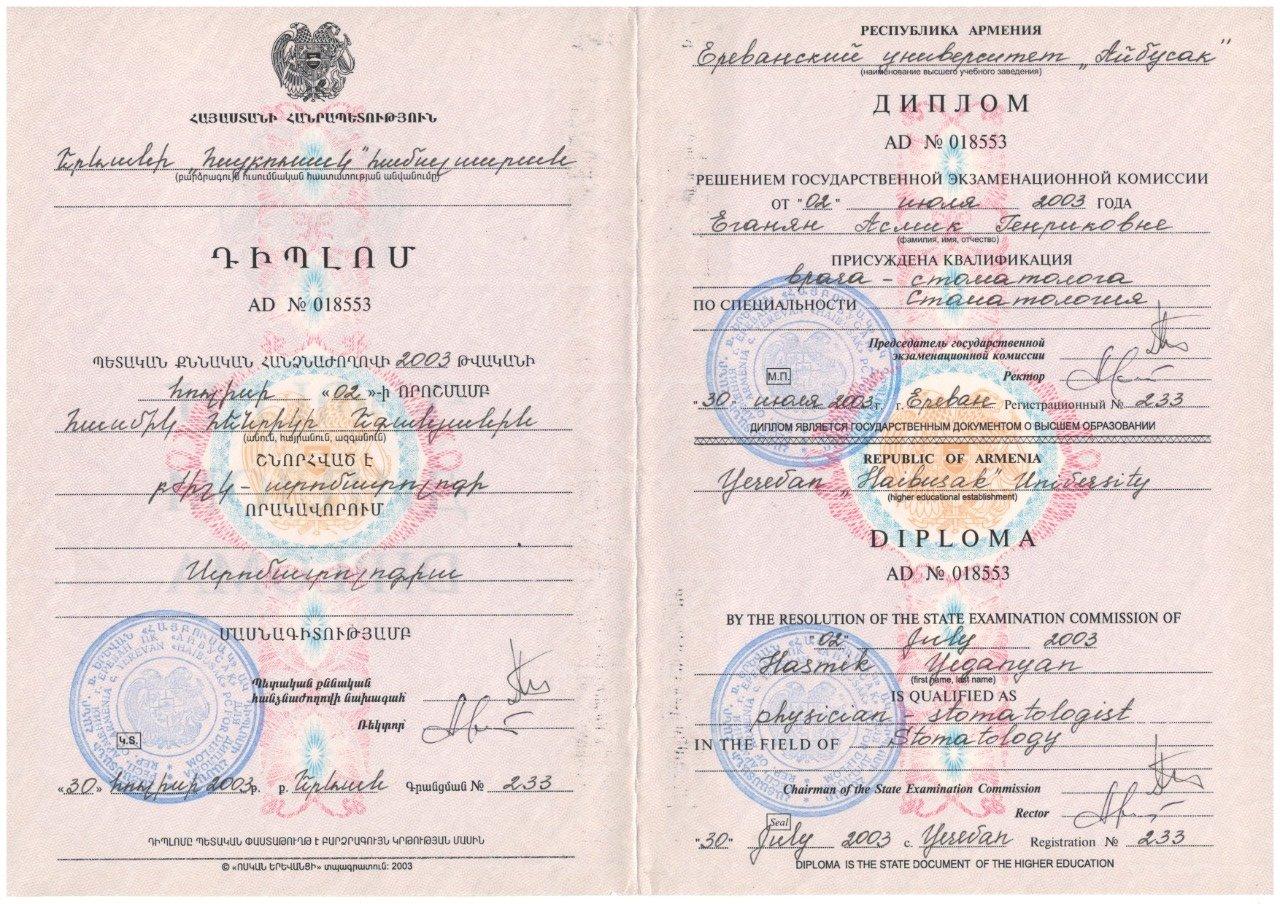 ՀԱՅԱՍՏԱՆԻ ՀԱՆՐԱՊԵՏՈՒԹՅՈՒՆ
Երևանի „Հայբուսակ“ համալսարան
(բարձրագույն ուսումնական հաստատության անվանումը)
ԴԻՊԼՈՄ
AD № 018553
ՊԵՏԱԿԱՆ ՔՆՆԱԿԱՆ ՀԱՆՁՆԱԺՈՂՈՎԻ 2003 ԹՎԱԿԱՆԻ
հուլիսի «02»-ի ՈՐՈՇՄԱՄԲ
Հասմիկ Հենրիկի Եգանյանին
(անուն, հայրանուն, ազգանուն)
ՇՆՈՐՀՎԱԾ Է
բժիշկ - ստոմատոլոգի
ՈՐԱԿԱՎՈՐՈՒՄ
Ստոմատոլոգիա
ՄԱՍՆԱԳԻՏՈՒԹՅԱՄԲ
Պետական քննական
հանձնաժողովի նախագահ
Ռեկտոր
Կ.Տ.
«30» հուլիսի 2003թ. ք. Երևան Գրանցման № 233
ԴԻՊԼՈՄԸ ՊԵՏԱԿԱՆ ՓԱՍՏԱԹՈՒՂԹ Է ԲԱՐՁՐԱԳՈՒՅՆ ԿՐԹՈՒԹՅԱՆ ՄԱՍԻՆ
© «ՈՍԿԱՆ ԵՐԵՎԱՆՑԻ» տպագրատուն: 2003
РЕСПУБЛИКА АРМЕНИЯ
Ереванский университет „Айбусак"
(наименование высшего учебного заведения)
ДИПЛОМ
AD № 018553
РЕШЕНИЕМ ГОСУДАРСТВЕННОЙ ЭКЗАМЕНАЦИОННОЙ КОМИССИИ
ОТ "02" июля 2003 ГОДА
Еганян Асмик Генриковне
(фамилия, имя, отчество)
ПРИСУЖДЕНА КВАЛИФИКАЦИЯ
врача - стоматолога
ПО СПЕЦИАЛЬНОСТИ Стоматология
Председатель государственной
экзаменационной комиссии
М.П.
Ректор
"30" июля 2003 г. г. Ереван Регистрационный № 233
ДИПЛОМ ЯВЛЯЕТСЯ ГОСУДАРСТВЕННЫМ ДОКУМЕНТОМ О ВЫСШЕМ ОБРАЗОВАНИИ
REPUBLIC OF ARMENIA
Yerevan „Haibusak" University
(higher educational establishment)
DIPLOMA
AD № 018553
BY THE RESOLUTION OF THE STATE EXAMINATION COMMISSION OF
"02" July 2003
Hasmik Yeganyan
(first name, last name)
IS QUALIFIED AS
physician - stomatologist
IN THE FIELD OF Stomatology
Chairman of the State Examination Commission
Rector
Seal
"30" July 2003 c. Yerevan Registration № 233
DIPLOMA IS THE STATE DOCUMENT OF THE HIGHER EDUCATION